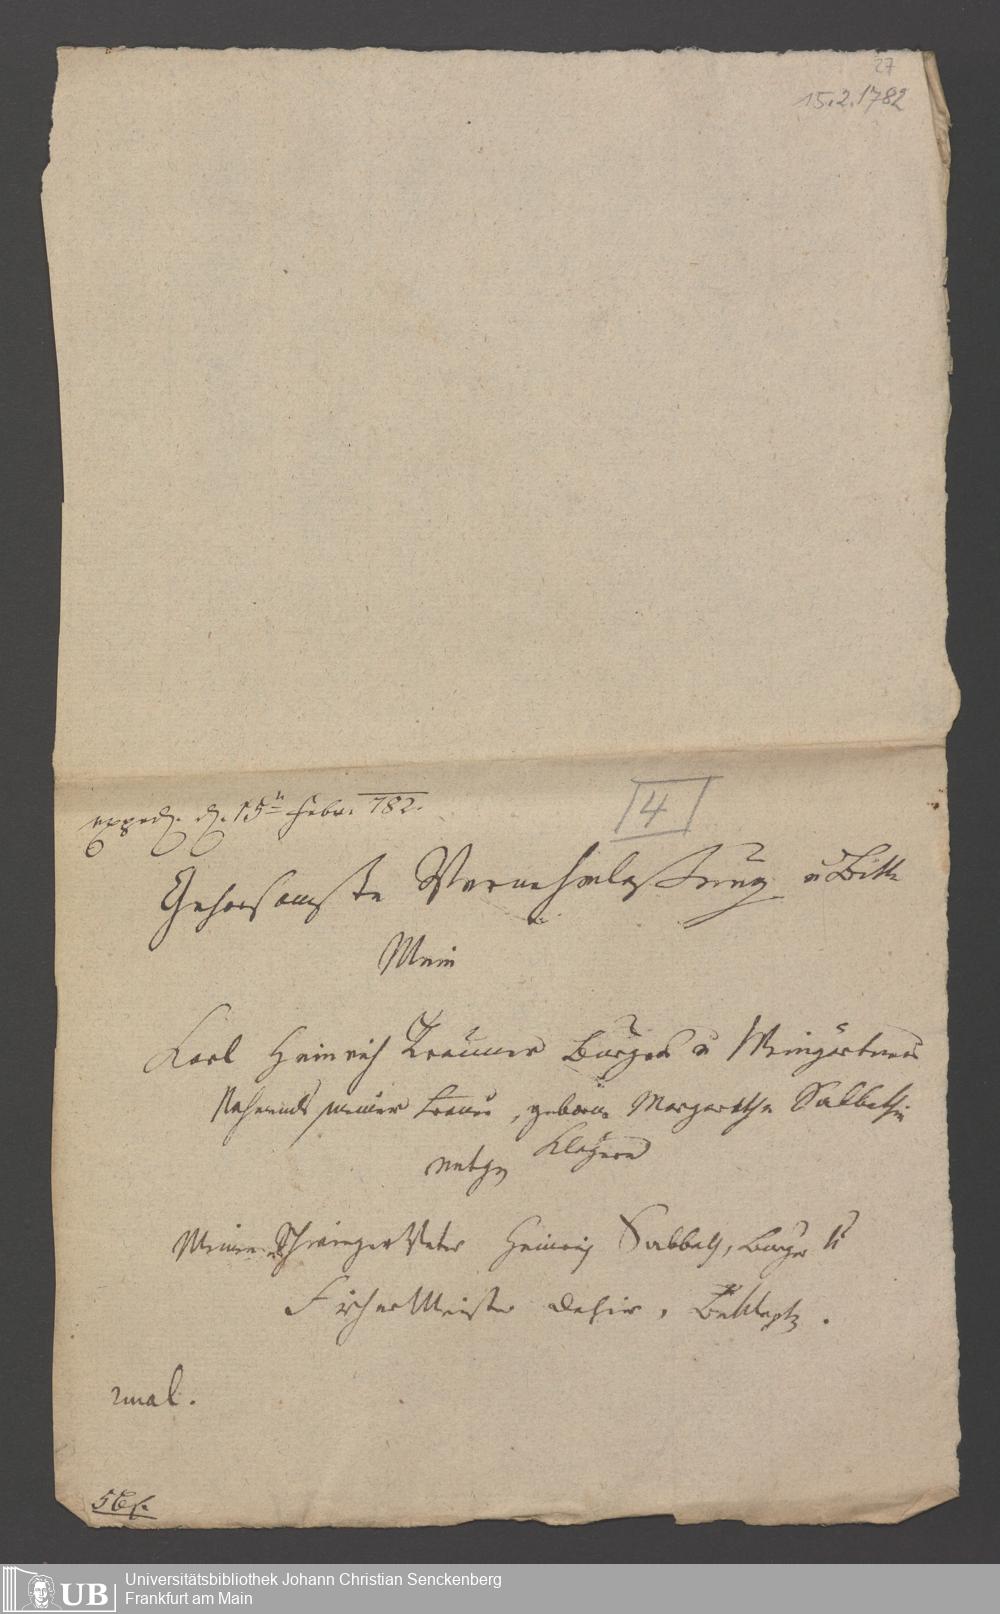 27
15.2.1782
exped. d. 15tn Febr. 782.
4
Gehorsamste Vernehmlaßung u Bitte
Mein
Karl Heinrich Trauner Burgers u Weingärtners
Nahmens meiner Frauen, geborne Margaretha Sabbathin
Klägere
entgg
Meinen SchwiegerVater Heinrich Sabbath, Burger u
FischerMeister dahier, Beklagte.
2mal.
Universitätsbibliothek Johann Christian Senckenberg
Frankfurt am Main
UB